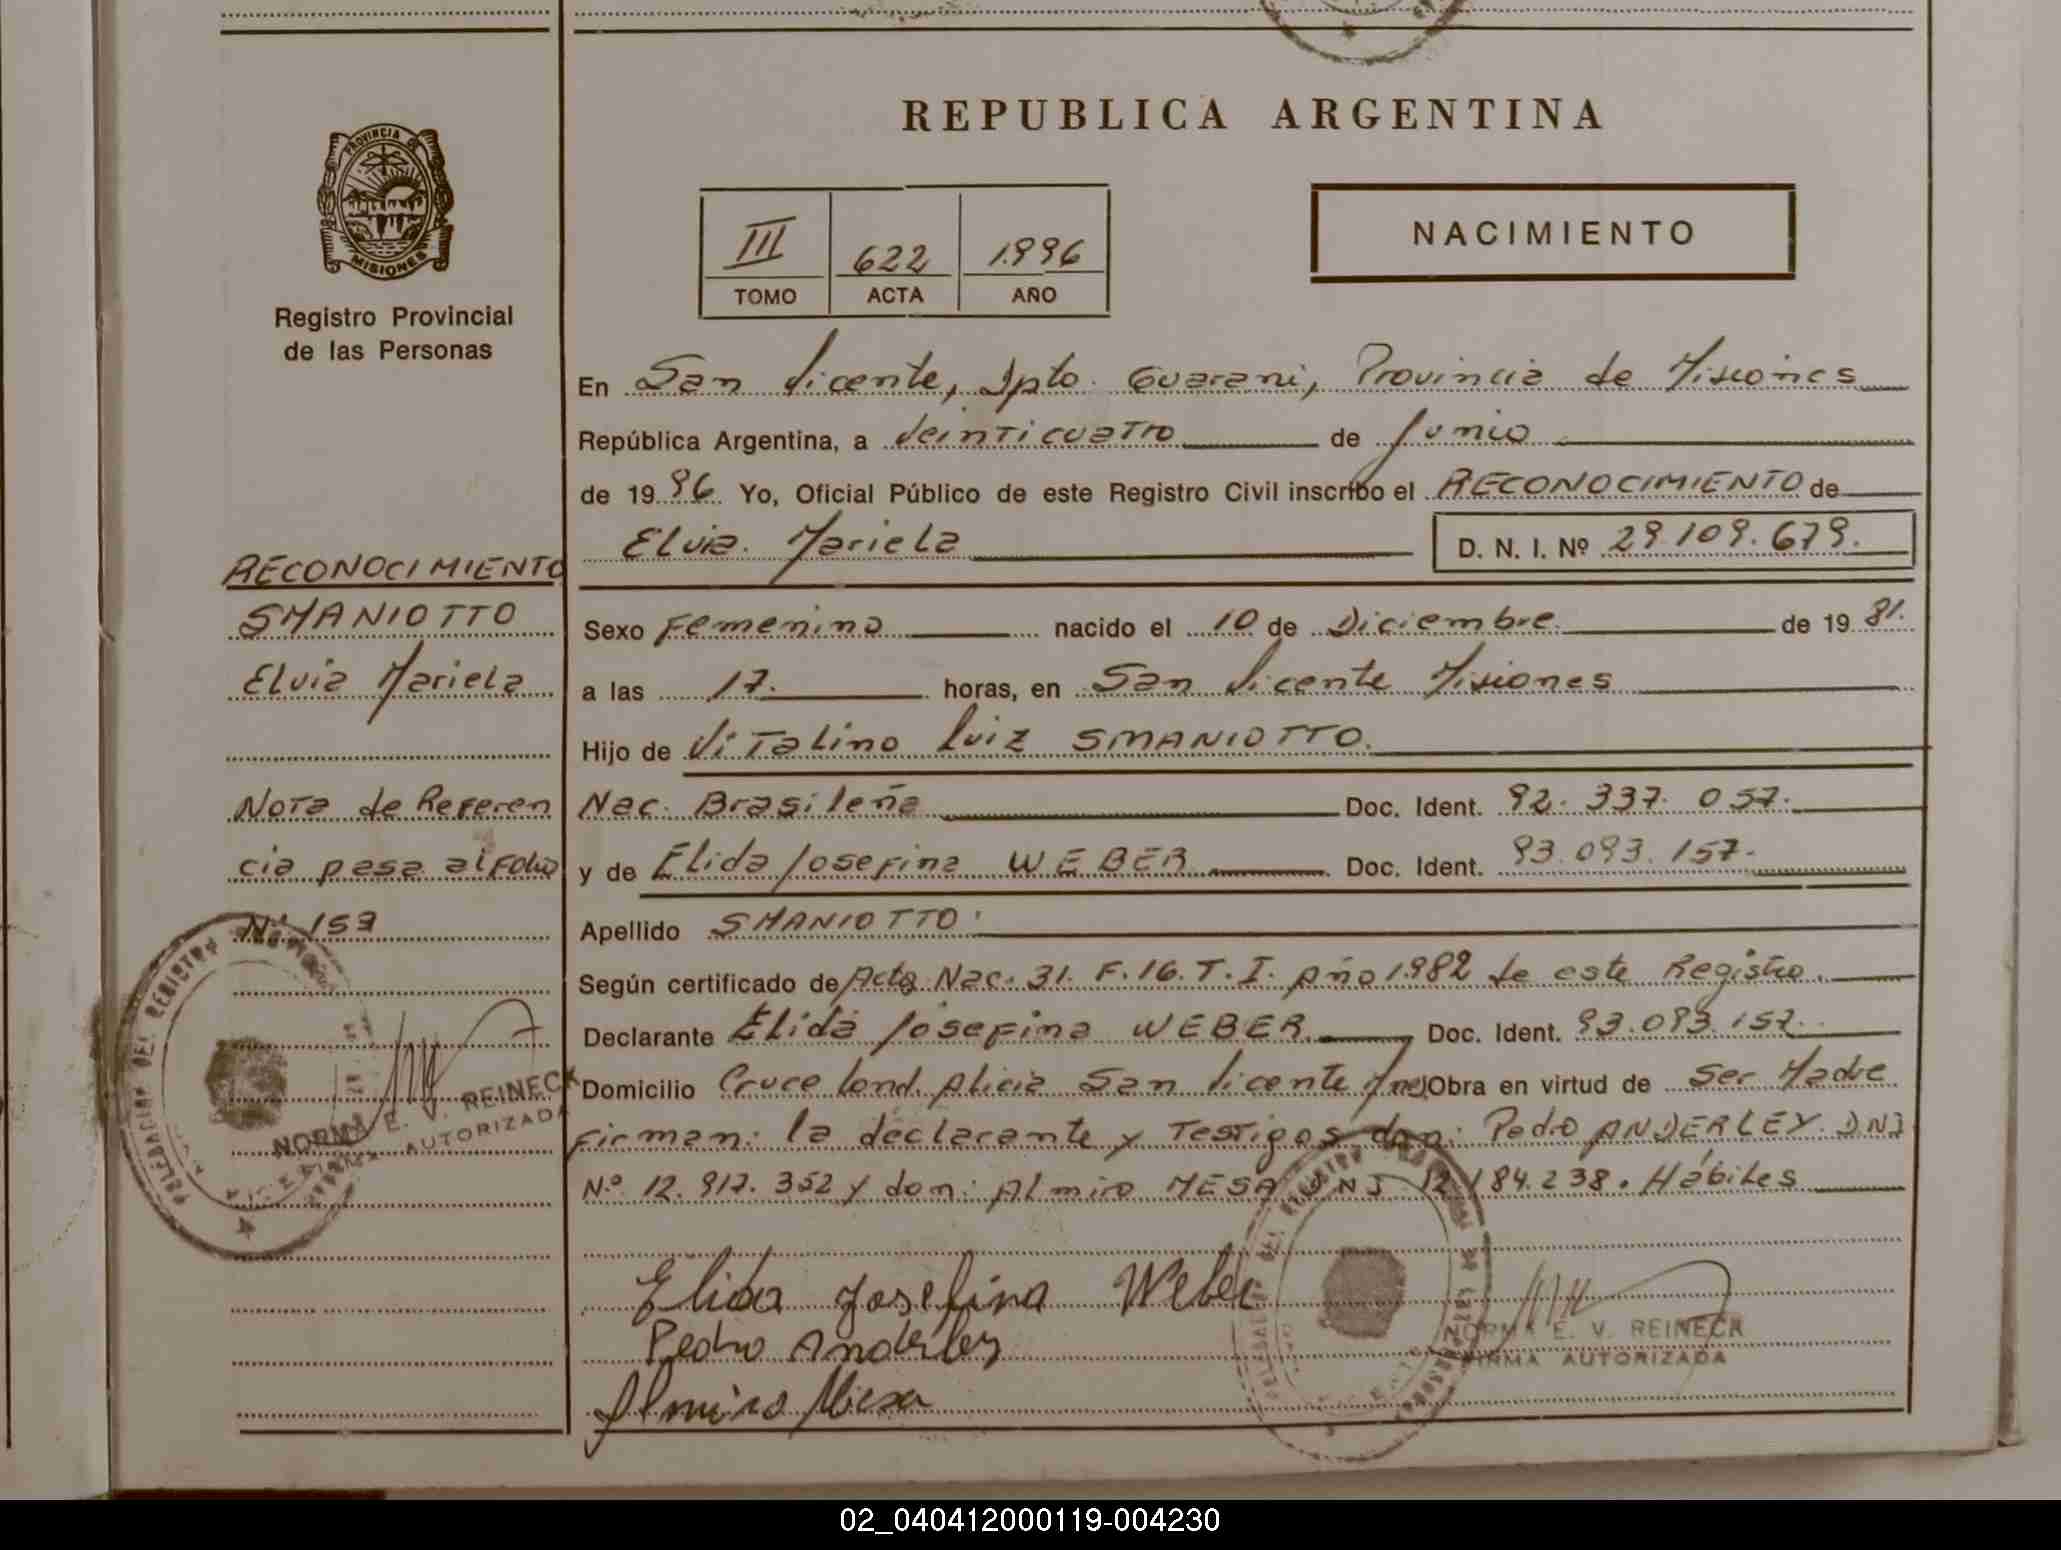 REPUBLICA ARGENTINA
PROVINCIA DE
MISIONES
Registro Provincial
de las Personas
III 622 1.996
TOMO ACTA AÑO
NACIMIENTO
En San Vicente, Dpto. Guarani, Provincia de Misiones
República Argentina, a Veinticuatro de Junio
de 19 96 Yo, Oficial Público de este Registro Civil inscribo el RECONOCIMIENTO de
Elvia Mariela D. N. I. Nº 29.109.679.
Sexo Femenino nacido el 10 de Diciembre de 19 81.
a las 17. horas, en San Vicente Misiones
Hijo de Vitalino Luiz SMANIOTTO.
Nac. Brasileña Doc. Ident. 92. 337. 057.
y de Elida Josefina WEBER Doc. Ident. 93.093.157.
Apellido SMANIOTTO.
Según certificado de Acta Nac. 31. F.16. T. I. Año 1.982 de este Registro.
Declarante Elida Josefina WEBER. Doc. Ident. 93.093.157.
Domicilio Cruce Lond. Alicia San Vicente Mnes Obra en virtud de Ser Madre
Firman: la declarante y Testigos don: Pedro ANDERLEY. DNI
Nº 12.917.352 y don: Almiro MESA DNI 12.184.238. Hábiles
Elida Josefina Weber
Pedro Anderley
Almiro Mesa
NORMA E. V. REINECK
FIRMA AUTORIZADA
RECONOCIMIENTO
SMANIOTTO
Elvia Mariela
Nota de Referen
cia pasa al Folio
Nº 159
NORMA E. V. REINECK
AUTORIZADA
02_040412000119-004230